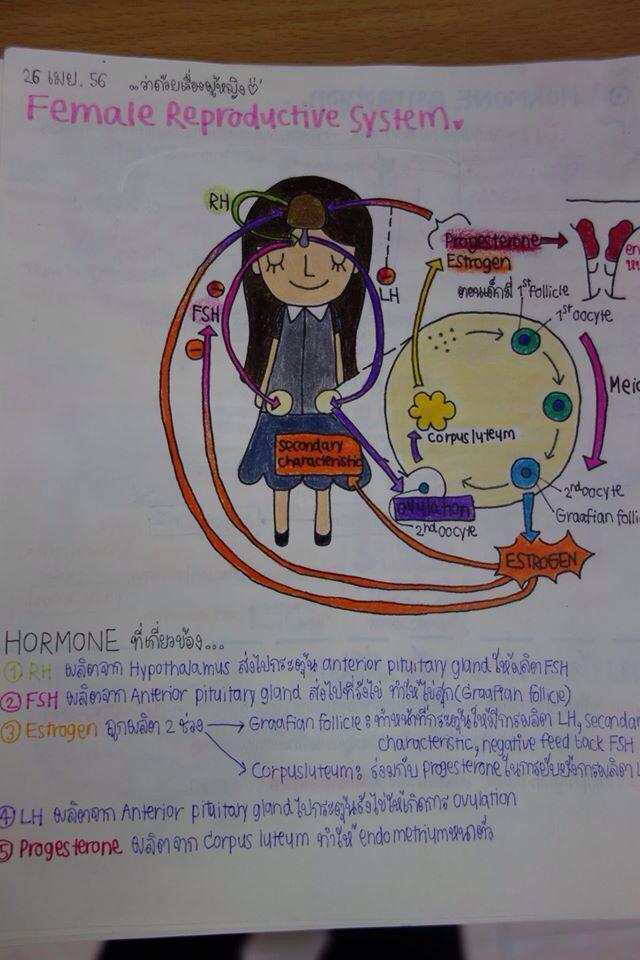 26 เมย. 56 ..ว่าด้วยเรื่องผู้หญิง
Female Reproductive System
RH
FSH
LH
Progesterone
Estrogen
ตอนเด็กมี 1st follicle
1st oocyte
Meio
corpus luteum
secondary
characteristic
ovulation
2nd oocyte
2nd oocyte
Graafian folli
ESTROGEN
HORMONE ที่เกี่ยวข้อง...
① RH ผลิตจาก Hypothalamus ส่งไปกระตุ้น anterior pituitary gland ให้ผลิต FSH
② FSH ผลิตจาก Anterior pituitary gland ส่งไปที่รังไข่ ทำให้ไข่สุก (Graafian follicle)
③ Estrogen ถูกผลิต 2 ช่วง → Graafian follicle : ทำหน้าที่กระตุ้นให้มีการผลิต LH, secondar
characteristic, negative feed back FSH
→ Corpus luteum : ร่วมกับ progesterone ในการยับยั้งการผลิต L
④ LH ผลิตจาก Anterior pituitary gland ไปกระตุ้นรังไข่ให้เกิดการ ovulation
⑤ Progesterone ผลิตจาก corpus luteum ทำให้ endometrium หนาตัว